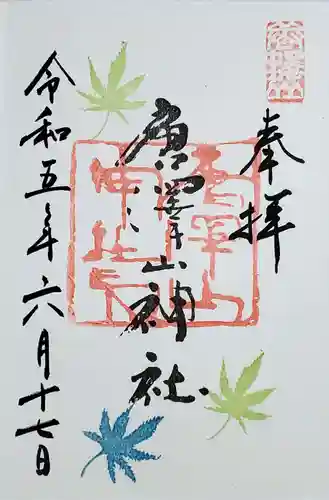 奉拝
唐澤山神社
令和五年六月十七日